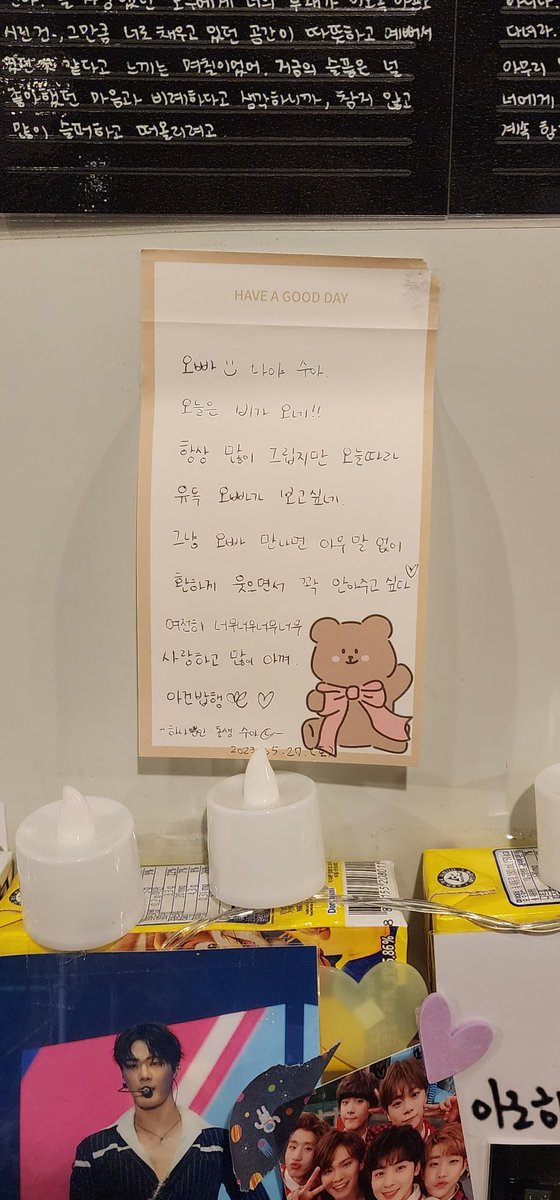 시린건.,그만큼 너로 채우고 있던 공간이 따뜻하고 예뻐서
같다고 느끼는 며칠이었어. 지금의 슬픔은 널
좋아했던 마음과 비례하다고 생각하니까, 참지 않고
많이 슬퍼하고 떠올리려고
다녀라
아무리
너에게
계속 함
HAVE A GOOD DAY
오빠 나야 수아.
오늘은 비가 오네!!
항상 많이 그립지만 오늘따라
유독 오빠가 보고싶네.
그냥 오빠 만나면 아무 말 없이
환하게 웃으면서 꽉 안아주고 싶다♡
여전히 너무너무너무너무
사랑하고 많이 아껴.
아건밥행 ♡
-하나뿐인 동생 수아-
2023.05.27.(토)